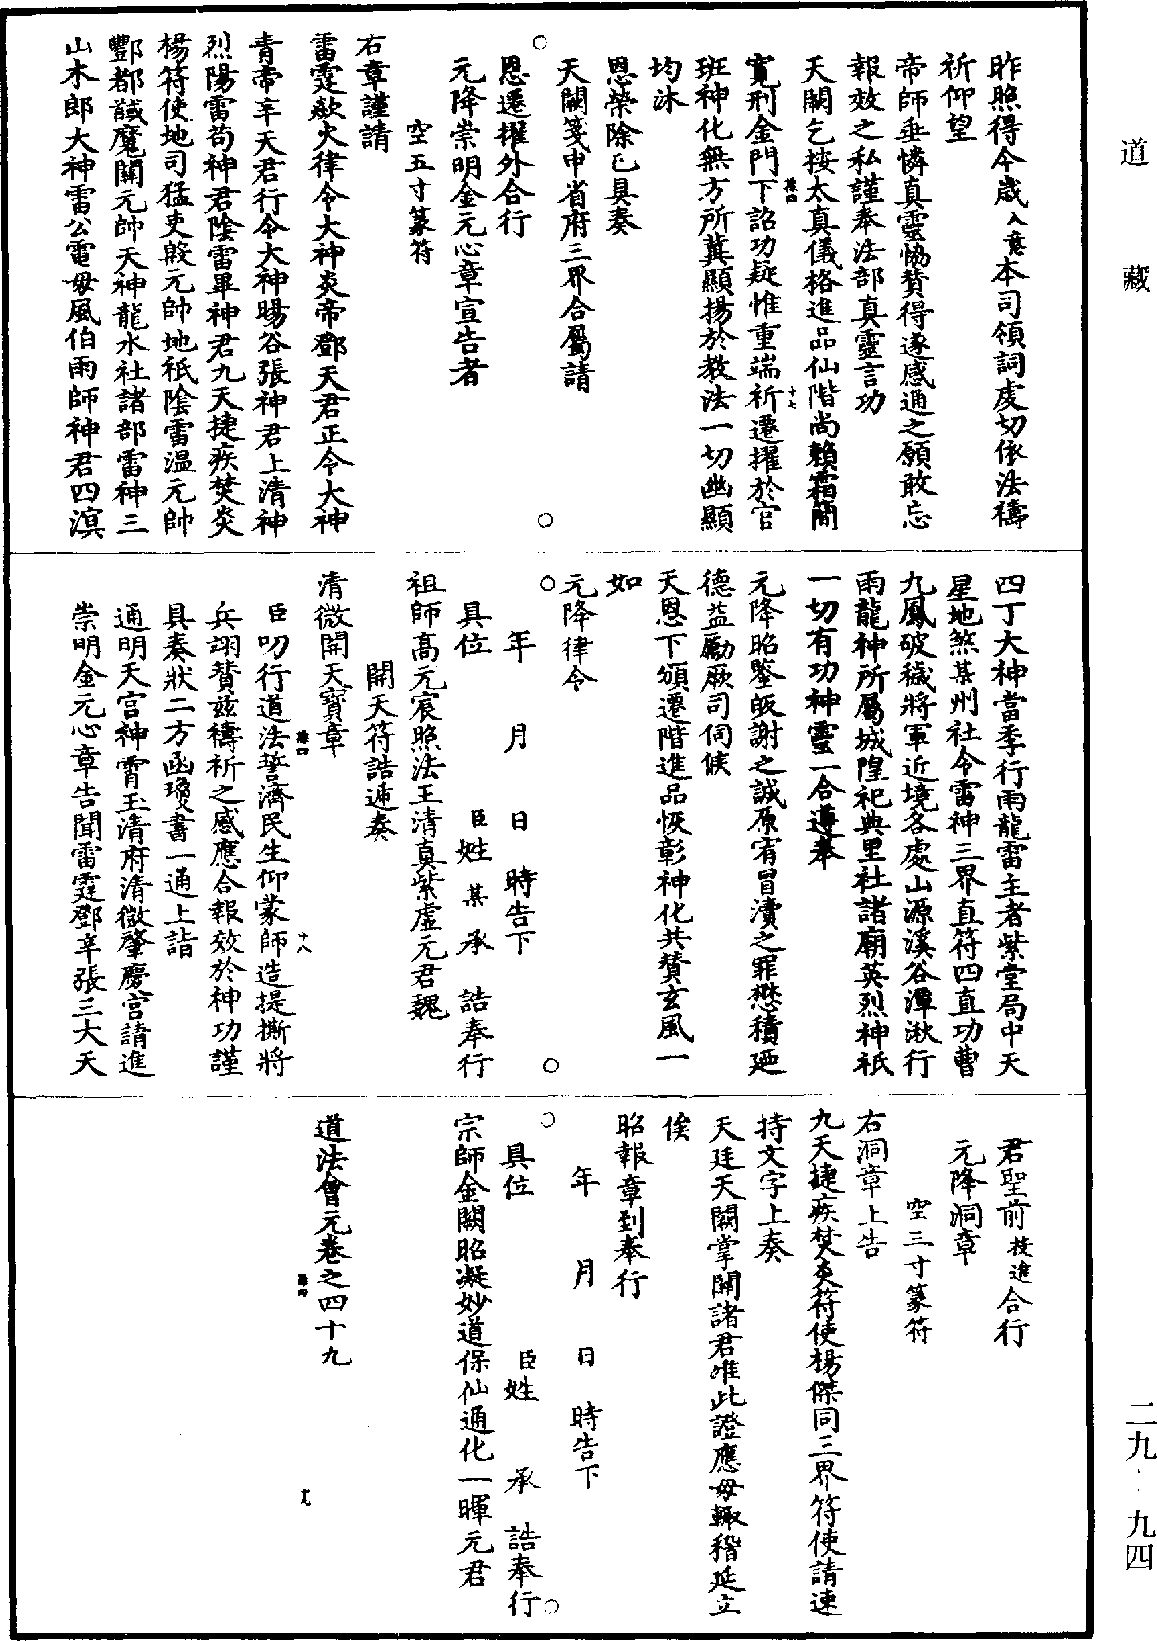 道藏
昨照得今歲入意本司領詞虔切依法禱
祈仰望
帝師垂憐真靈恊贊得遂感通之願敢忘
報效之私謹奉法部真靈言功
天闕乞按太真儀格進品仙階尚賴霜簡
寬刑金門下詔功疑惟重端祈遷擢於官
班神化無方所冀顯揚於教法一切幽顯
均沐
恩榮除已具奏
天闕箋申省府三界合屬請
恩遷擢外合行
元降崇明金元心章宣告者
空五寸篆符
右章謹請
雷霆欻火律令大神炎帝鄧天君正令大神
青帝辛天君行令大神暘谷張神君上清神
烈陽雷苟神君陰雷畢神君九天捷疾焚炎
楊符使地司猛吏殷元帥地祇陰雷温元帥
酆都馘魔關元帥天神龍水社諸部雷神三
山木郎大神雷公電母風伯雨師神君四溟
四丁大神當季行雨龍雷主者紫堂局中天
星地煞某州社令雷神三界直符四直功曹
九鳳破穢將軍近境各處山源溪谷潭湫行
雨龍神所屬城隍祀典里社諸廟英烈神祇
一切有功神靈一合遵奉
元降昭鑒皈謝之誠原宥冒瀆之罪懋積廼
德益勵厥司伺候
天恩下頒遷階進品恢彰神化共贊玄風一
如
元降律令
年 月 日 時告下
具位 臣姓 某 承 誥奉行
祖師高元宸照法王清真紫虛元君魏
開天符誥遞奏
清微開天寶章
臣叨行道法誓濟民生仰蒙師造提撕將
兵翊贊兹禱祈之感應合報效於神功謹
具奏狀二方函瓊書一通上詣
通明天宫神霄玉清府清微肇慶宫請進
崇明金元心章告聞雷霆鄧辛張三大天
君聖前投進合行
元降洞章
空三寸篆符
右洞章上告
九天捷疾焚炎符使楊傑同三界符使請速
持文字上奏
天廷天闕掌關諸君唯此證應毋輙稽延立
俟
昭報章到奉行
年 月 日 時告下
具位 臣姓 承 誥奉行
宗師金闕昭凝妙道保仙通化一暉元君
道法會元卷之四十九
十七
十八
二九·九四